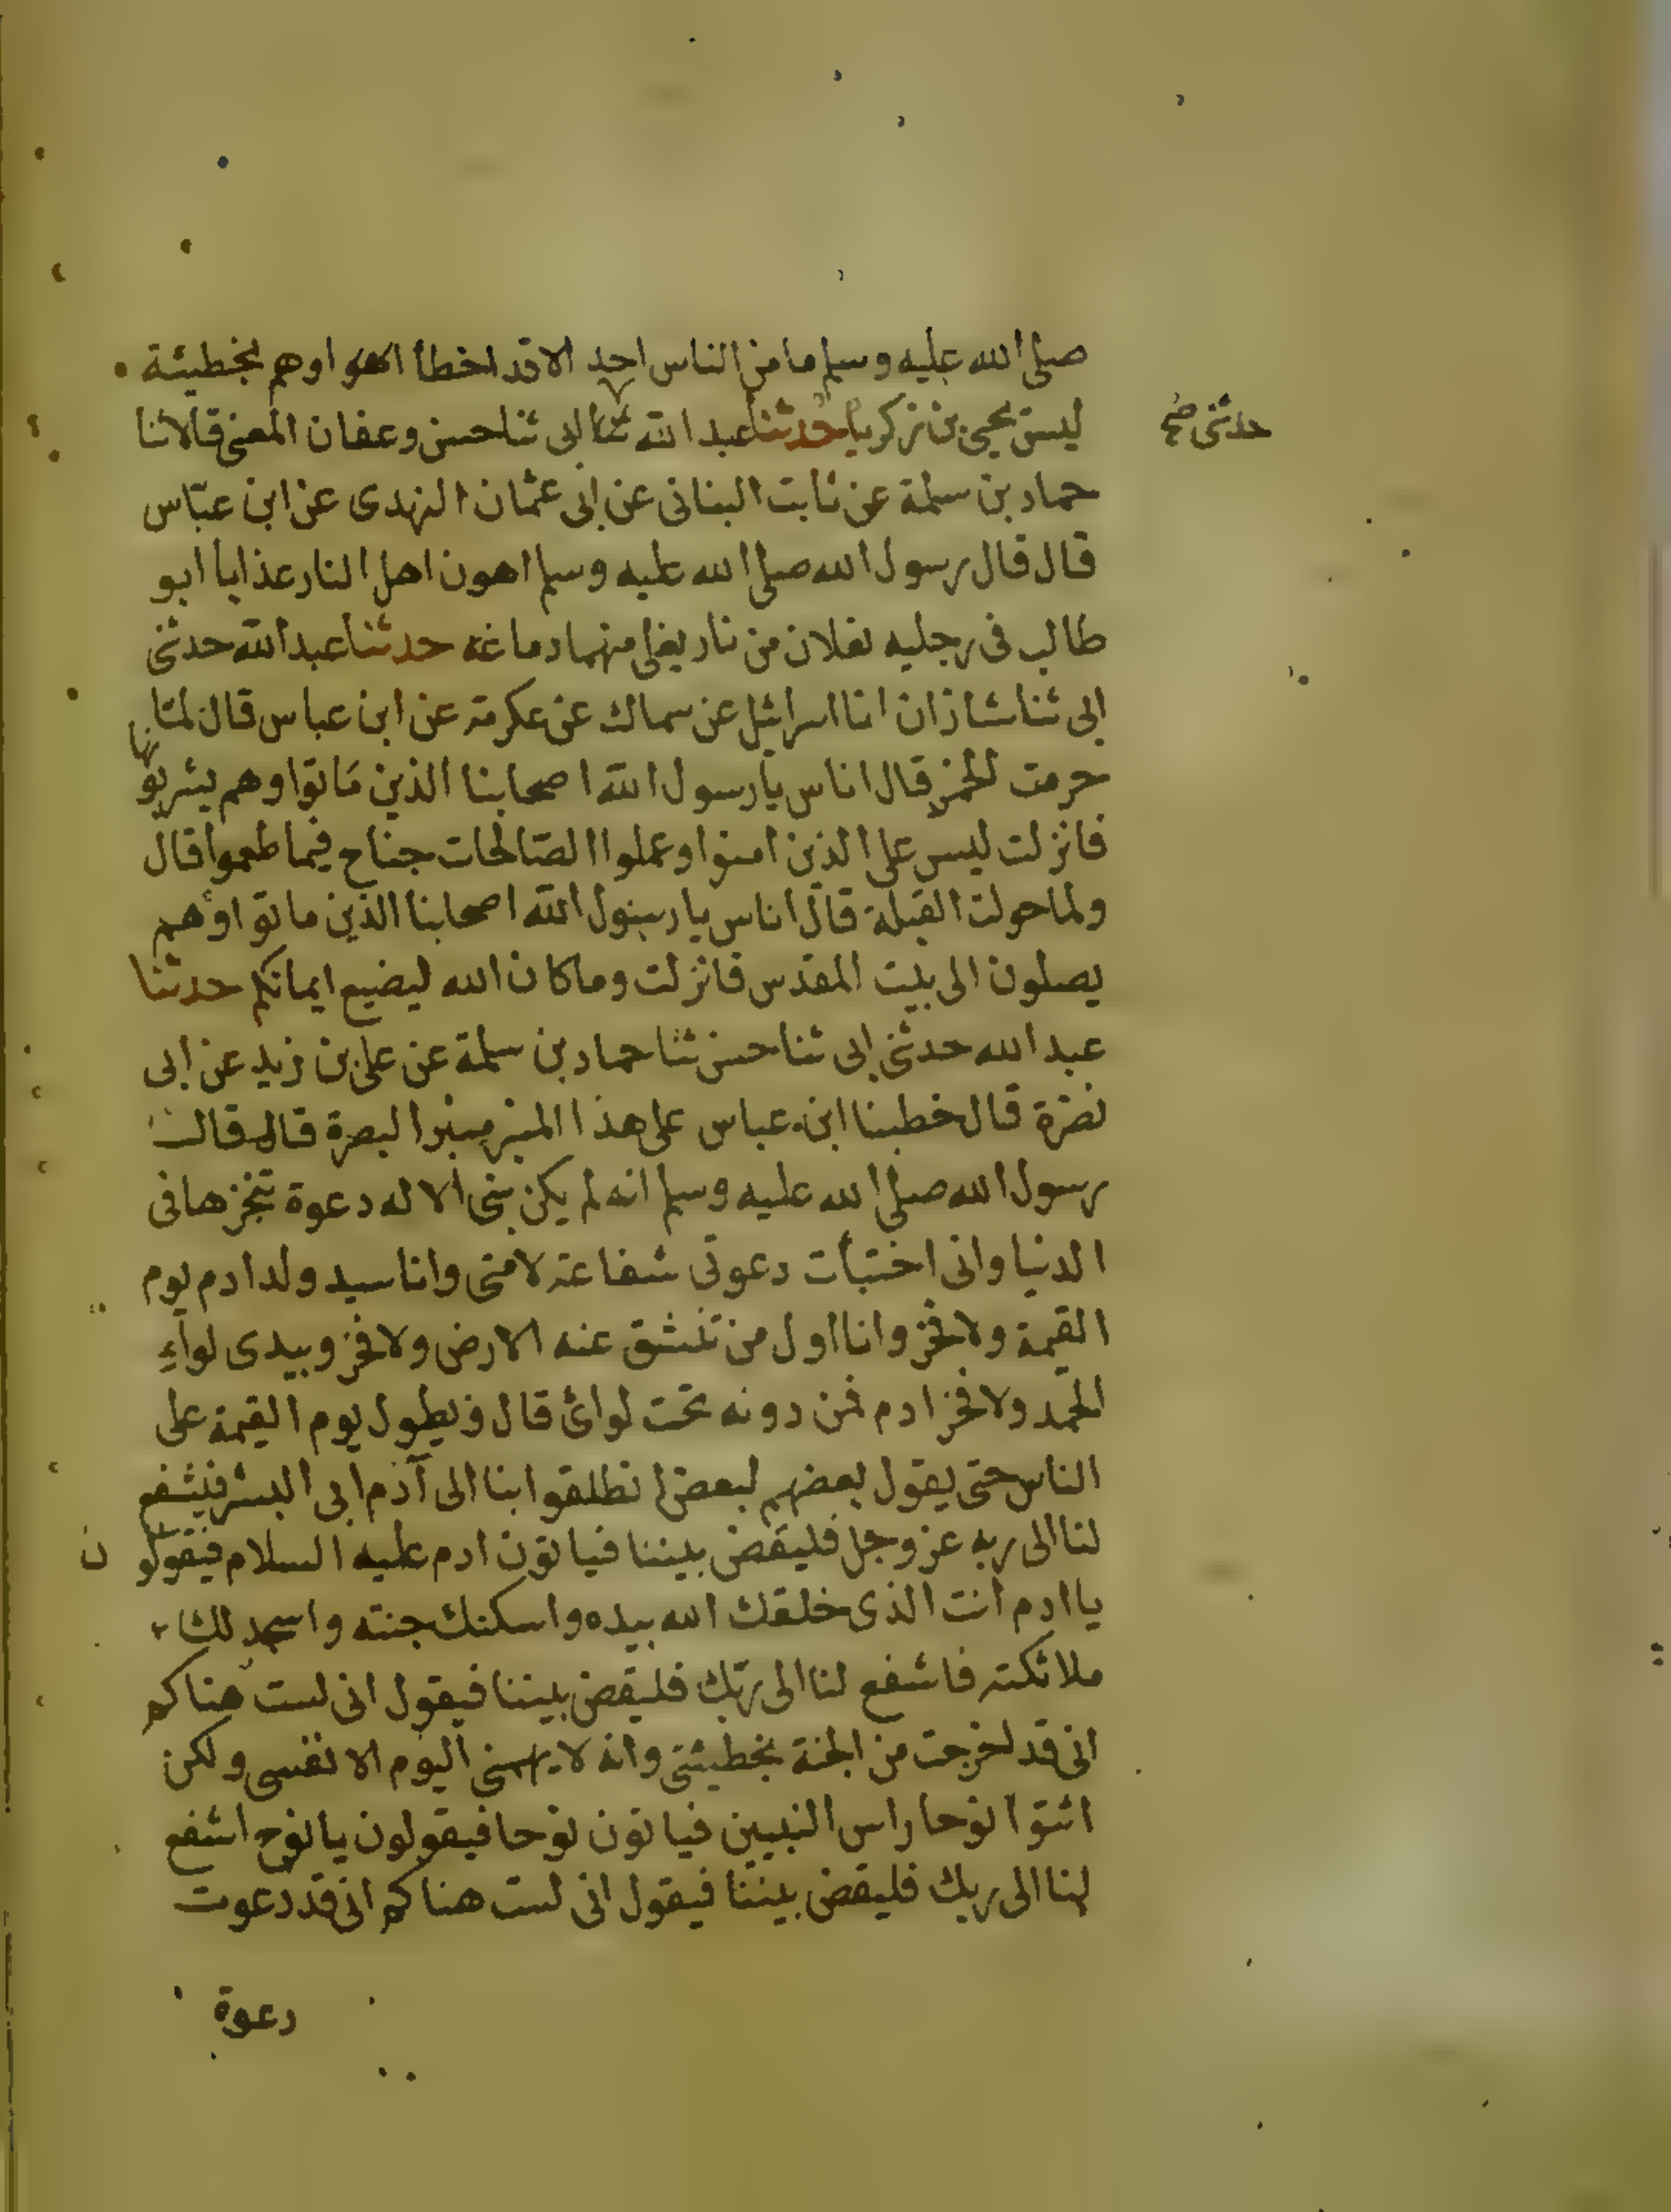 صلى الله عليه وسلم ما من الناس احد الا قد اخطأ او هم بخطيئة
ليس يحيى بن زكريا حدثنا عبد الله ثنا ابى ثنا حسن وعفان المعنى قالا ثنا
حدثنى صح
حماد بن سلمة عن ثابت البنانى عن ابى عثمان النهدى عن ابن عباس
قال قال رسول الله صلى الله عليه وسلم اهون اهل النار عذابا ابو
طالب فى رجليه نعلان من نار يغلى منهما دماغه حدثنا عبد الله حدثنى
ابى ثنا شاذان انا اسرائيل عن سماك عن عكرمة عن ابن عباس قال لما
حرمت الخمر قال اناس يا رسول الله اصحابنا الذين ماتوا وهم يشربونها
فانزلت ليس على الذين امنوا وعملوا الصالحات جناح فيما طعموا قال
ولما حولت القبلة قال اناس يا رسول الله اصحابنا الذين ماتوا وهم
يصلون الى بيت المقدس فانزلت وما كان الله ليضيع ايمانكم حدثنا
عبد الله حدثنى ابى ثنا حسن ثنا حماد بن سلمة عن على بن زيد عن ابى
نضرة قال خطبنا ابن عباس على هذا المنبر منبر البصرة قال قال
رسول الله صلى الله عليه وسلم انه لم يكن نبى الا له دعوة تنجزها فى
الدنيا وانى اختبأت دعوتى شفاعة لامتى وانا سيد ولد ادم يوم
القيمة ولا فخر وانا اول من تنشق عنه الارض ولا فخر وبيدى لواء
الحمد ولا فخر ادم فمن دونه تحت لوائ قال ويطول يوم القيمة على
الناس حتى يقول بعضهم لبعض انطلقوا بنا الى آدم ابى البشر فيشفع
لنا الى ربه عز وجل فليقض بيننا فياتون ادم عليه السلام فيقولون
يا ادم انت الذى خلقك الله بيده واسكنك جنته واسجد لك
ملائكته فاشفع لنا الى ربك فليقض بيننا فيقول انى لست هناكم
انى قد اخرجت من الجنة بخطيئتى وانه لا يهمنى اليوم الا نفسى ولكن
ائتوا نوحا راس النبيين فياتون نوحا فيقولون يا نوح اشفع
لنا الى ربك فليقض بيننا فيقول انى لست هناكم انى قد دعوت
دعوة